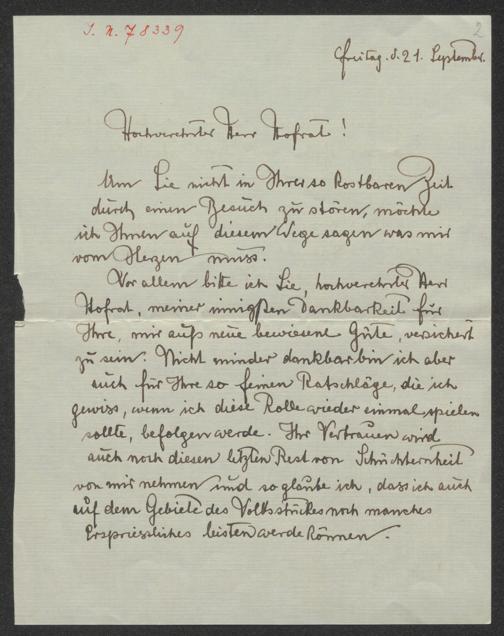 J. N. 78339
2
Freitag. d. 21. September.
Hochverehrter Herr Hofrat!
Um Sie nicht in Ihrer so kostbaren Zeit
durch einen Besuch zu stören, möchte
ich Ihnen auf diesem Wege sagen was mir
vom Herzen muss.
Vor allem bitte ich Sie, hochverehrter Herr
Hofrat, meiner innigsten Dankbarkeit für
Ihre, mir aufs neue bewiesene Güte, versichert
zu sein. Nicht minder dankbar bin ich aber
auch für Ihre so feinen Ratschläge, die ich
gewiss, wenn ich diese Rolle wieder einmal spielen
sollte, befolgen werde. Ihr Vertrauen wird
auch noch diesen letzten Rest von Schüchternheit
von mir nehmen und so glaube ich, dass ich auch
auf dem Gebiete des Volksstückes noch manches
Erspriessliches leisten werde können.